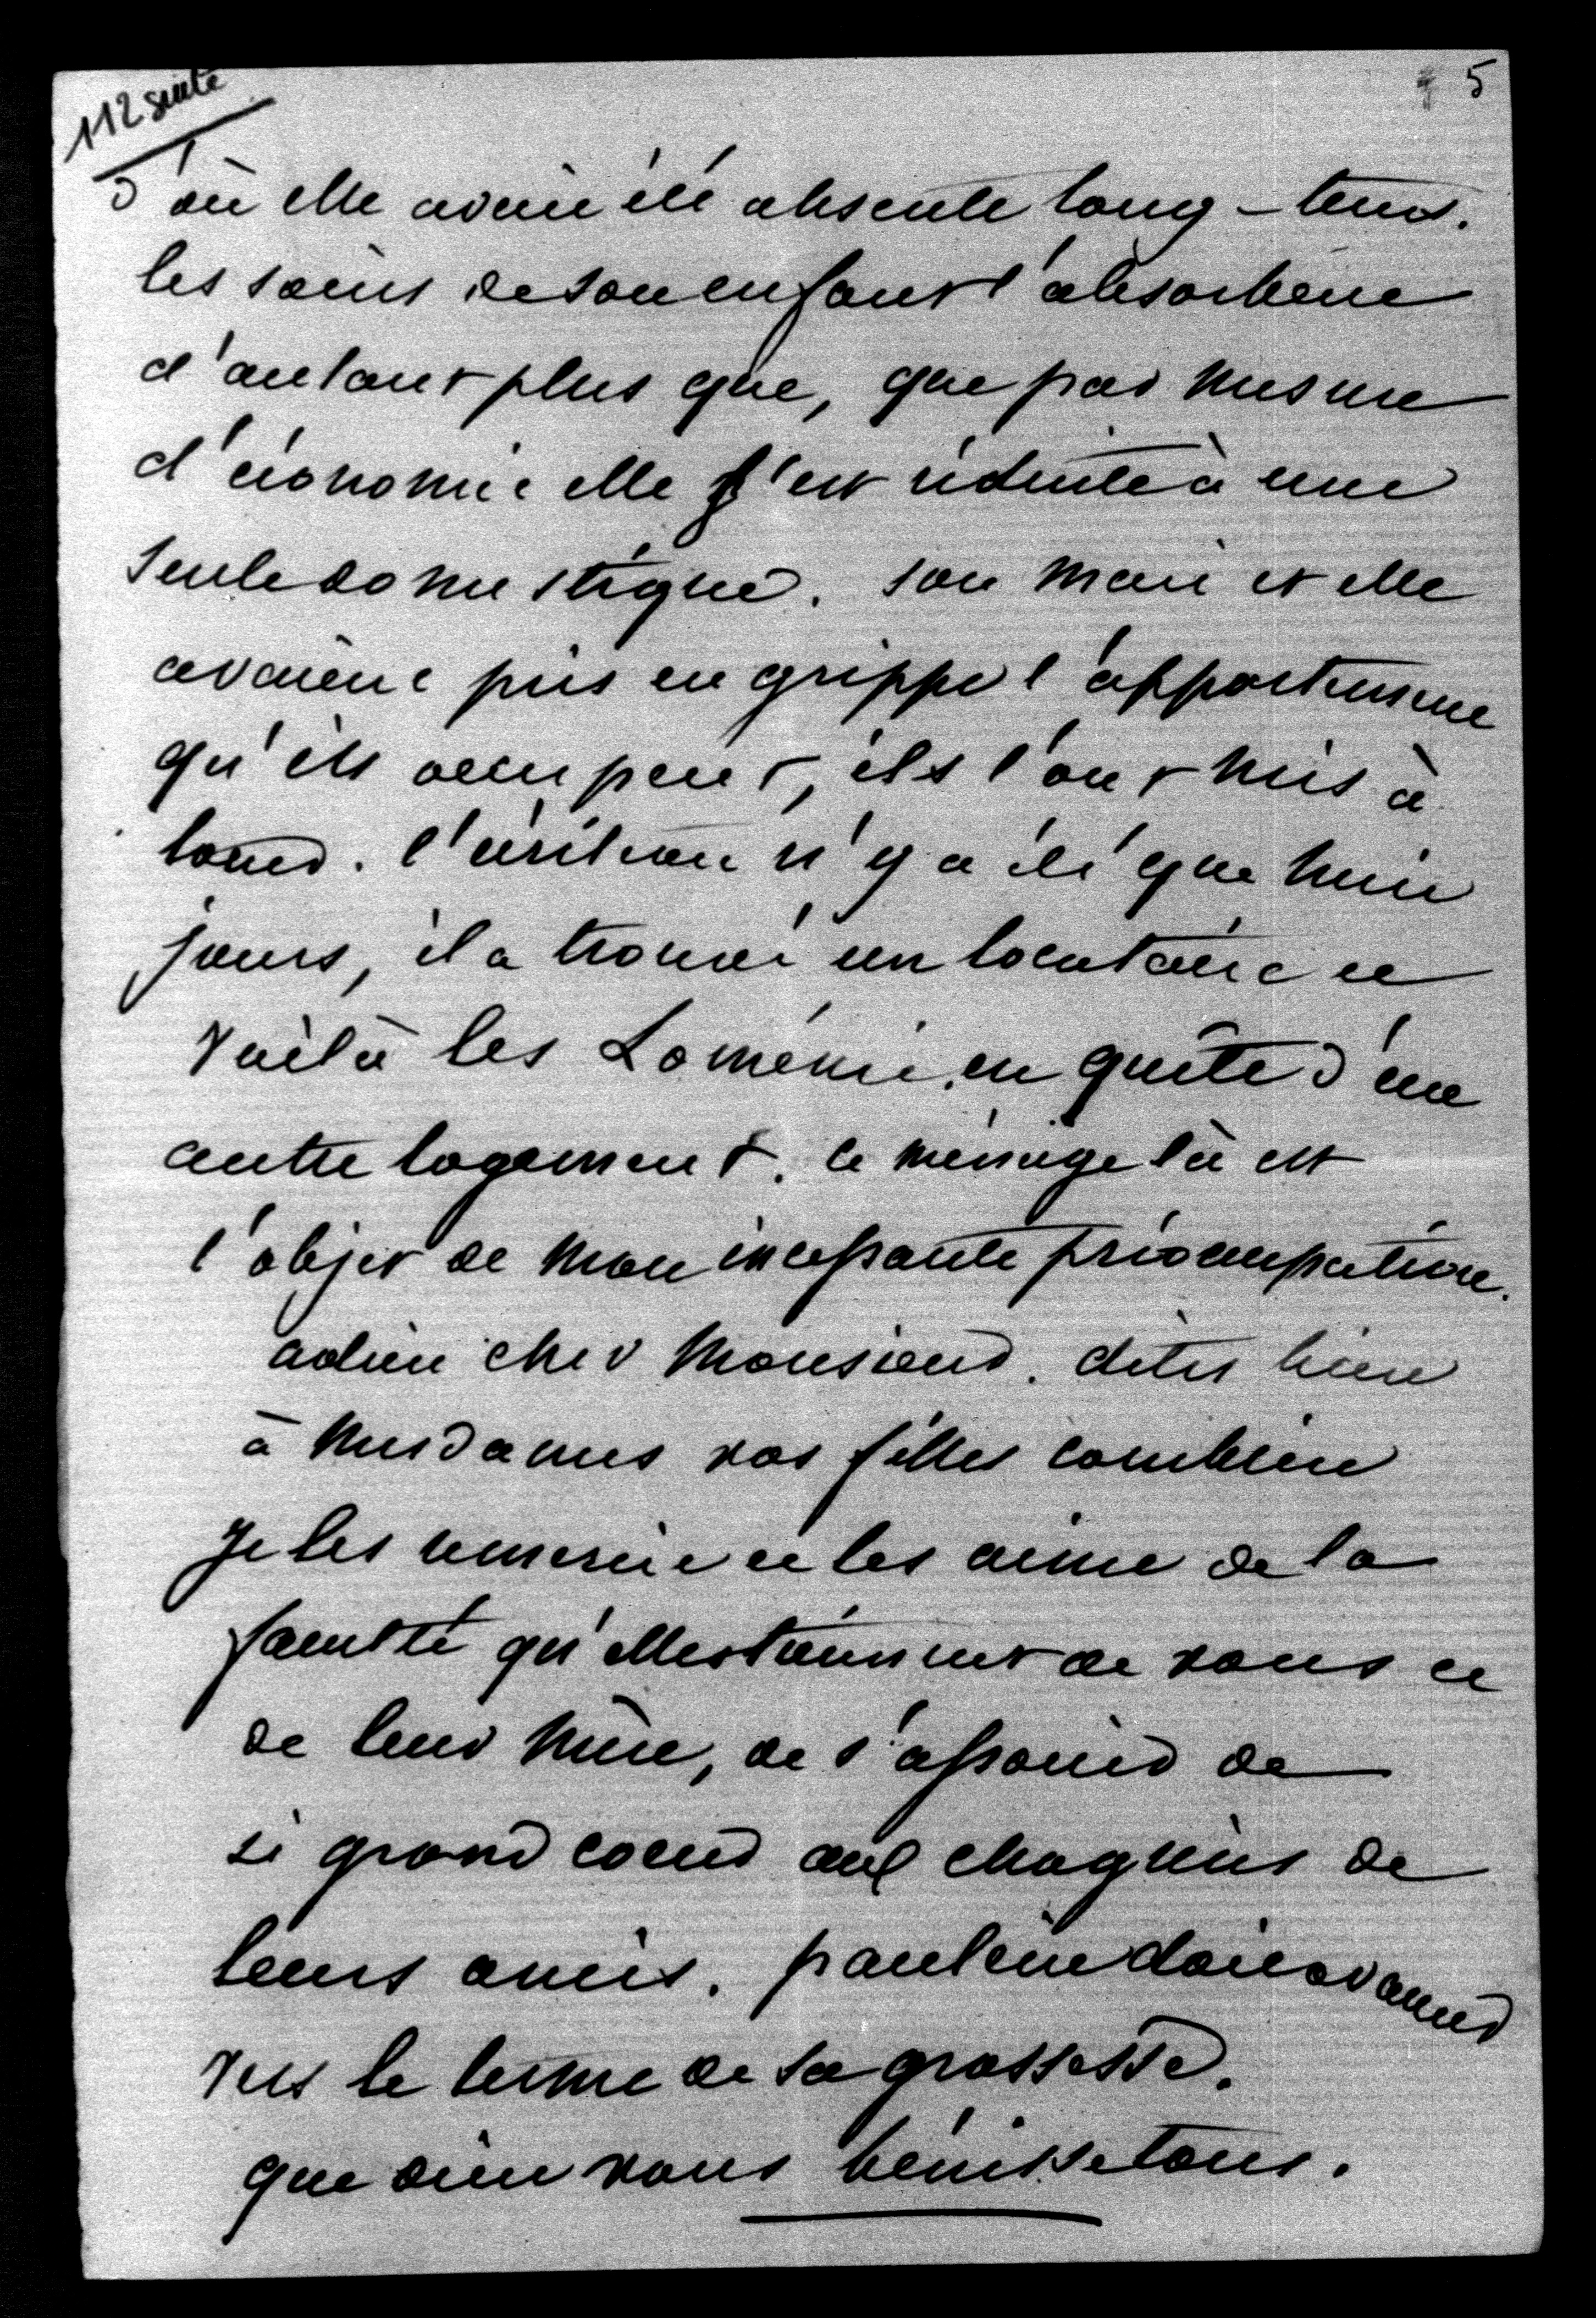 112 suite
5
d'où elle avait été absente long-tems.
les soins de son enfant l'absorbent
d'autant plus que, que par mesure
d'économie elle s'est réduite à une
seule domestique. son mari et elle
avaient pris en grippe l'appartement
qu'ils occupent, ils l'ont mis à
louer. l'écriteau n'y a été que huit
jours, il a trouvé un locataire et
voilà les Loménie en quête d'un
autre logement. ce ménage là est
l'objet de mon incessante préocupation.
adieu cher Monsieur. dites bien
à Mesdames vos filles combien
je les remercie et les aime de la
faculté qu'elles tiennent de vous et
de leur Mère, de s'associer de
si grand coeur aux chagrins de
leurs amis. pauline doit avancer
vers le terme de sa grossesse.
que dieu vous bénisse tous.